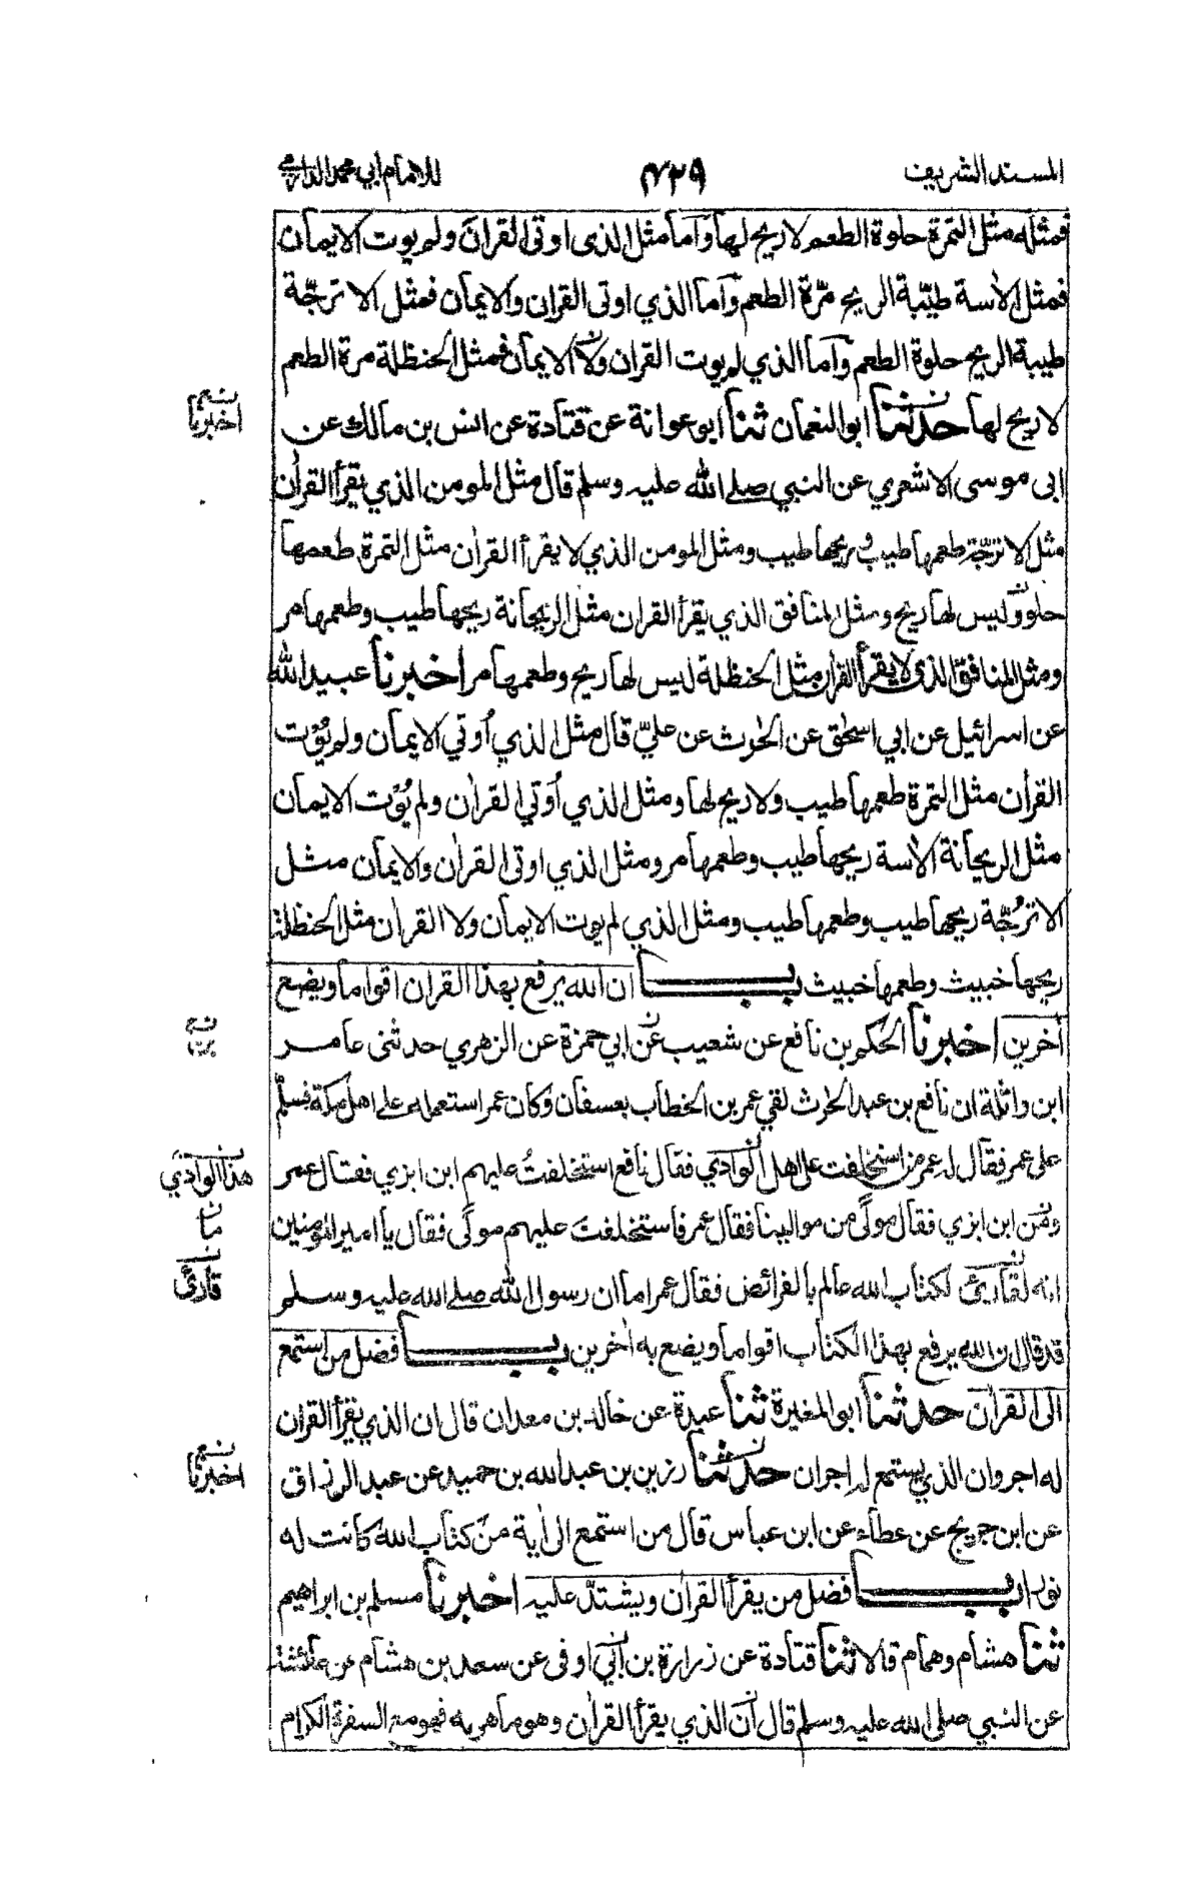 المسند الشريف
٤٢٩
للامام ابي محمد الدارمي
فمثله مثل التمرة حلوة الطعم لا ريح لها وأما مثل الذى اوتى القرآن ولم يوت الايمان
فمثل الآسة طيّبة الريح مرّة الطعم وآما الذي اوتى القران والايمان فمثل الاترجّة
طيبة الريح حلوة الطعم وآما الذي لم يوت القران ولا الايمان فمثل الحنظلة مرة الطعم
لا ريح لها حدثنا ابو النعمان ثنا ابو عوانة عن قتادة عن انس بن مالك عن
ابى موسى الاشعري عن النبي صلى الله عليه وسلم قال مثل المومن الذي يقرأ القرآن
مثل الاترجّة طعمها طيب و ريحها طيب ومثل المومن الذي لا يقرأ القرآن مثل التمرة طعمها
حلو وليس لها ريح ومثل المنافق الذي يقرأ القرآن مثل الريحانة ريحها طيب وطعمها مر
ومثل المنافق الذى لا يقرأ القران مثل الحنظلة ليس لها ريح وطعمها مر اخبرنا عبيد الله
عن اسرائيل عن ابي اسحٰق عن الحٰرث عن عليّ قال مثل الذي أُوتي الايمان ولم يُؤت
القرآن مثل التمرة طعمها طيب ولا ريح لها ومثل الذي أُوتي القرآن ولم يُؤت الايمان
مثل الريحانة الآسة ريحها طيب وطعمها مر ومثل الذي اوتى القرآن والايمان مثل
الاترُجّة ريحها طيب وطعمها طيب ومثل الذي لم يوت الايمان ولا القران مثل الحنظلة
ريحها خبيث وطعمها خبيث باب ان الله يرفع بهذا القران اقواما ويضع
آخرين اخبرنا الحكم بن نافع عن شعيب عن ابي حمزة عن الزهري حدثنى عامر
ابن واثلة ان نافع بن عبد الحٰرث لقي عمر بن الخطاب بعسفان وكان عمر استعمله على اهل مكة فسلّم
على عمر فقال له عمر من استخلفت على اهل الوادي فقال نافع استخلفتُ عليهم ابن ابزي فقال عمر
ومن ابن ابزي فقال مولًى من موالينا فقال عمر فاستخلفتَ عليهم مولًى فقال يا امير المومنين
انه لقارئ لكتاب الله عالم بالفرائض فقال عمر اما ان رسول الله صلى الله عليه وسلم
قد قال ان الله يرفع بهذا الكتاب اقواما ويضع به اٰخرين باب فضل من استمع
الى القرآن حدثنا ابو المغيرة ثنا عبدة عن خالد بن معدان قال ان الذي يقرأ القران
له اجر وان الذي يستمع له اجران حدثنا رزين بن عبد الله بن حميد عن عبد الرزاق
عن ابن جريج عن عطاء عن ابن عباس قال من استمع الى اٰية من كتاب الله كانت له
نورا باب فضل من يقرأ القرآن ويشتدّ عليه اخبرنا مسلم بن ابراهيم
ثنا هشام وهمام قالا ثنا قتادة عن زرارة بن ابي اوفى عن سعد بن هشام عن عائشة
عن النبي صلى الله عليه وسلم قال ان الذي يقرأ القرآن وهو ماهر به فهو مع السفرة الكرام
اخبرنا
هذا الوادي
مان
قارئ
اخبرنا